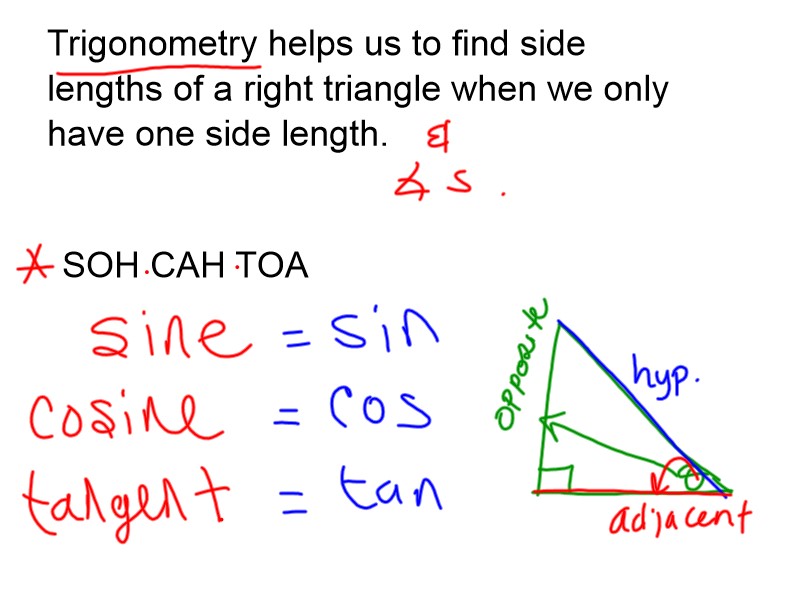 Trigonometry helps us to find side
lengths of a right triangle when we only
have one side length. &
∡ s .
* SOH·CAH·TOA
sine = sin
cosine = cos
tangent = tan
opposite
hyp.
θ
adjacent